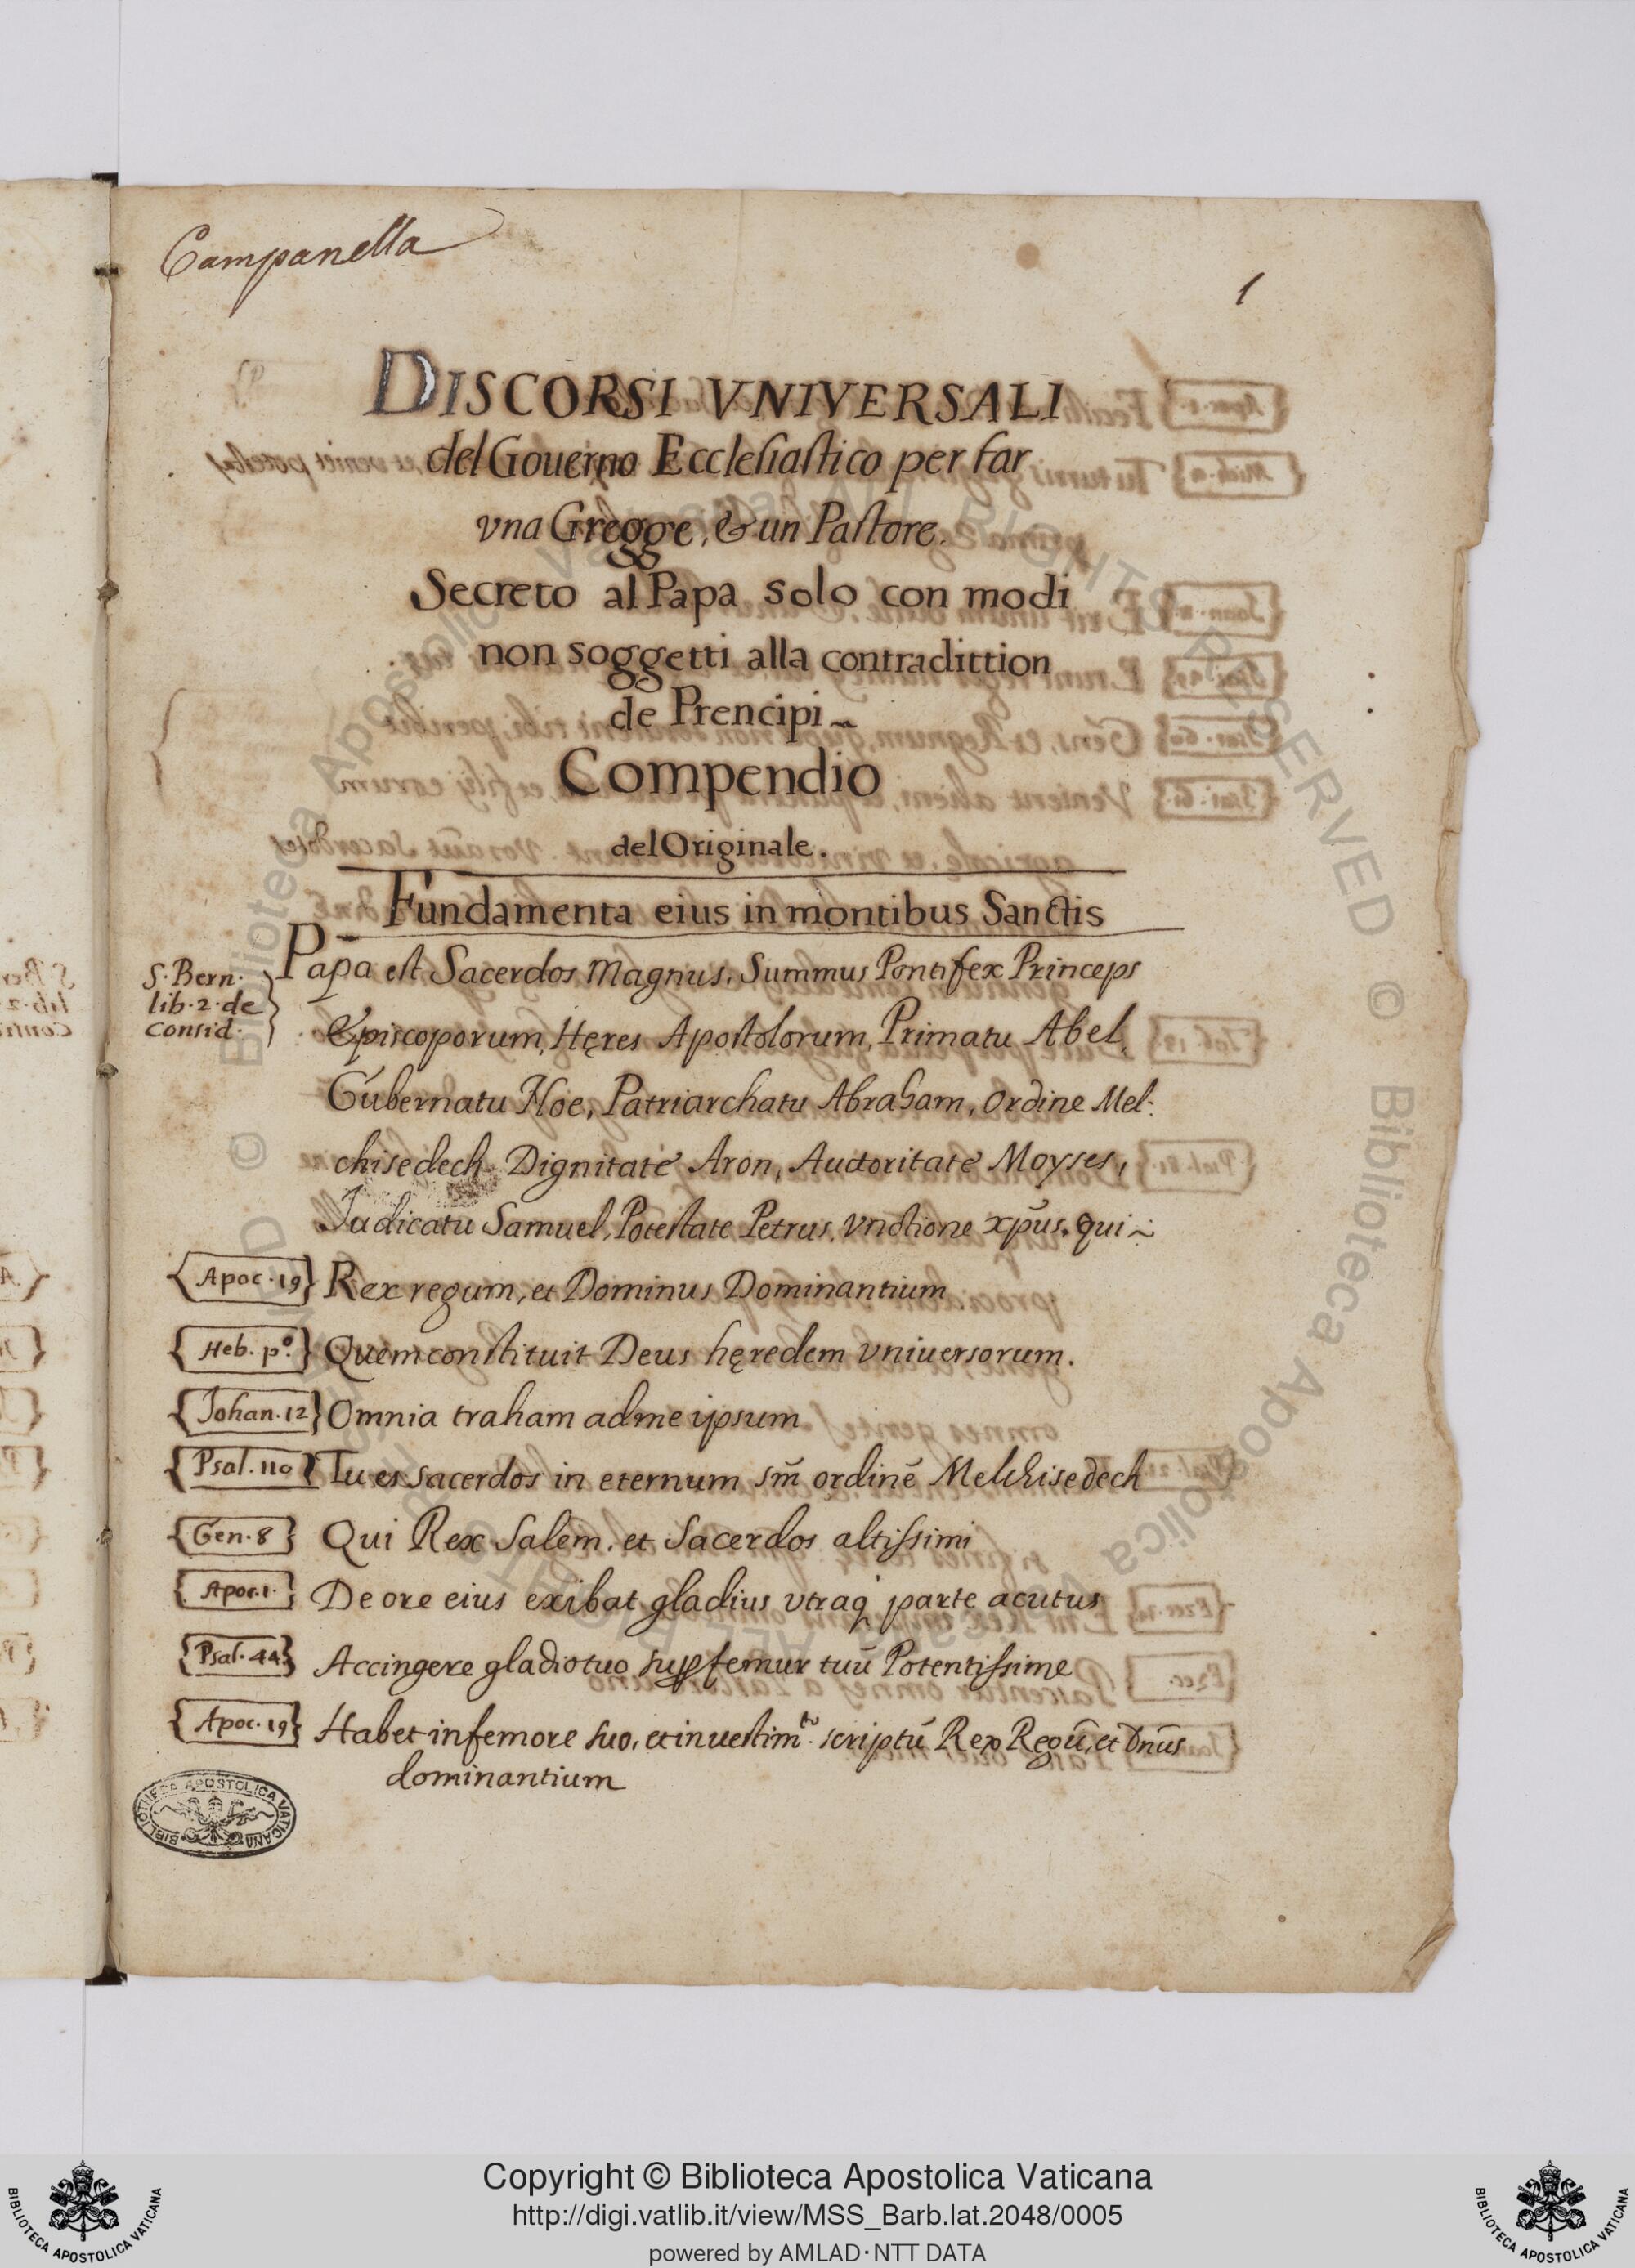 Campanella
1
DISCORSI VNIVERSALI
del Gouerno Ecclesiastico per far
vna Gregge, & un Pastore.
Secreto al Papa solo con modi
non soggetti alla contradittion
de Prencipi
Compendio
del Originale.
Fundamenta eius in montibus Sanctis
S. Bern.
lib. 2. de
Consid.
Papa est Sacerdos Magnus, Summus Pontifex Princeps
Episcoporum, Hęres Apostolorum, Primatu Abel,
Gubernatu Noe, Patriarchatu Abraham, Ordine Mel:
chisedech Dignitate Aron, Auctoritate Moyses,
Iudicatu Samuel, Potestate Petrus, Vnctione xp̄us. qui
{Apoc. 19} Rex regum, et Dominus Dominantium
{Heb. pº.} Quem constituit Deus hęredem vniuersorum.
{Johan. 12} Omnia traham ad me ipsum
{Psal. 110} Tu es sacerdos in eternum sm̄ ordinē Melchisedech
{Gen. 8} Qui Rex Salem, et Sacerdos altissimi
{Apoc. 1.} De ore eius exibat gladius vtraq; parte acutus
{Psal. 44} Accingere gladio tuo sup femur tuū Potentissime
{Apoc. 19} Habet in femore suo, et in uestim.to scriptū Rex Regū, et Dn̄us
dominantium
BIBLIOTHECA APOSTOLICA VATICANA
Copyright © Biblioteca Apostolica Vaticana
http://digi.vatlib.it/view/MSS_Barb.lat.2048/0005
powered by AMLAD·NTT DATA
BIBLIOTECA APOSTOLICA VATICANA
BIBLIOTECA APOSTOLICA VATICANA